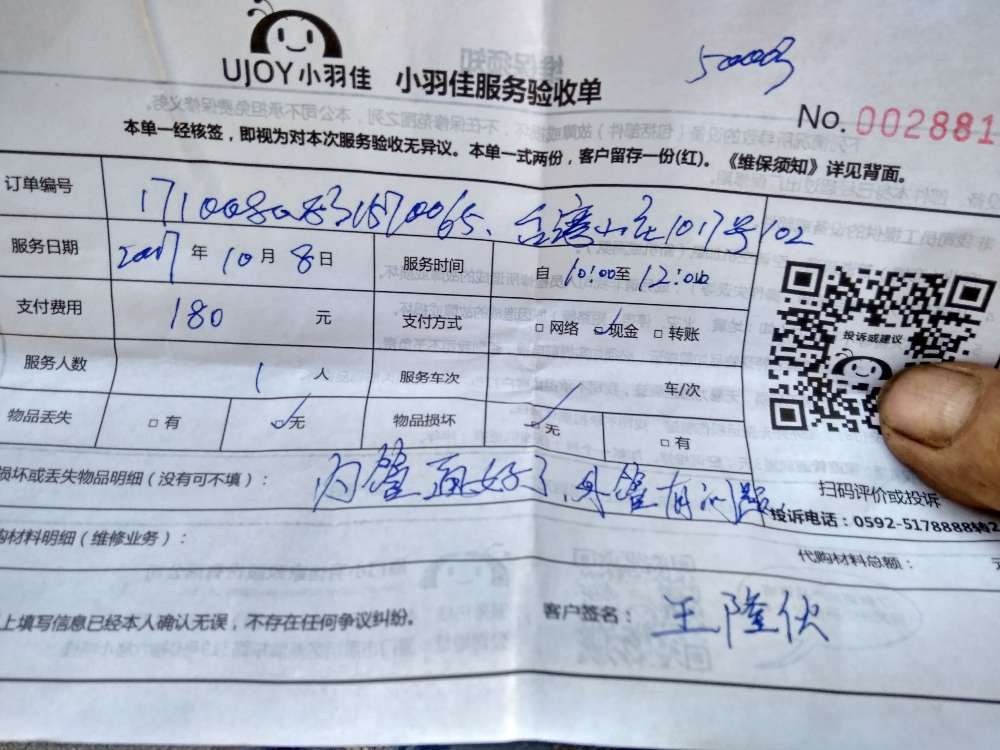 UJOY小羽佳 小羽佳服务验收单
No. 002881
本单一经核签，即视为对本次服务验收无异议。本单一式两份，客户留存一份(红)。《维保须知》详见背面。
订单编号 台湾小庄1017号102
服务日期 2017年10月8日 服务时间 自10:00至12:00
支付费用 180元 支付方式 □网络 ☑现金 □转账
服务人数 1人 服务车次 / 车/次
物品丢失 □有 ☑无 物品损坏 ☑无 □有
投诉或建议
损坏或丢失物品明细（没有可不填）： 内管 好了、外管有问题
扫码评价或投诉
投诉电话：0592-5178888
购材料明细（维修业务）： 代购材料总额：
上填写信息已经本人确认无误，不存在任何争议纠纷。 客户签名：王隆伙